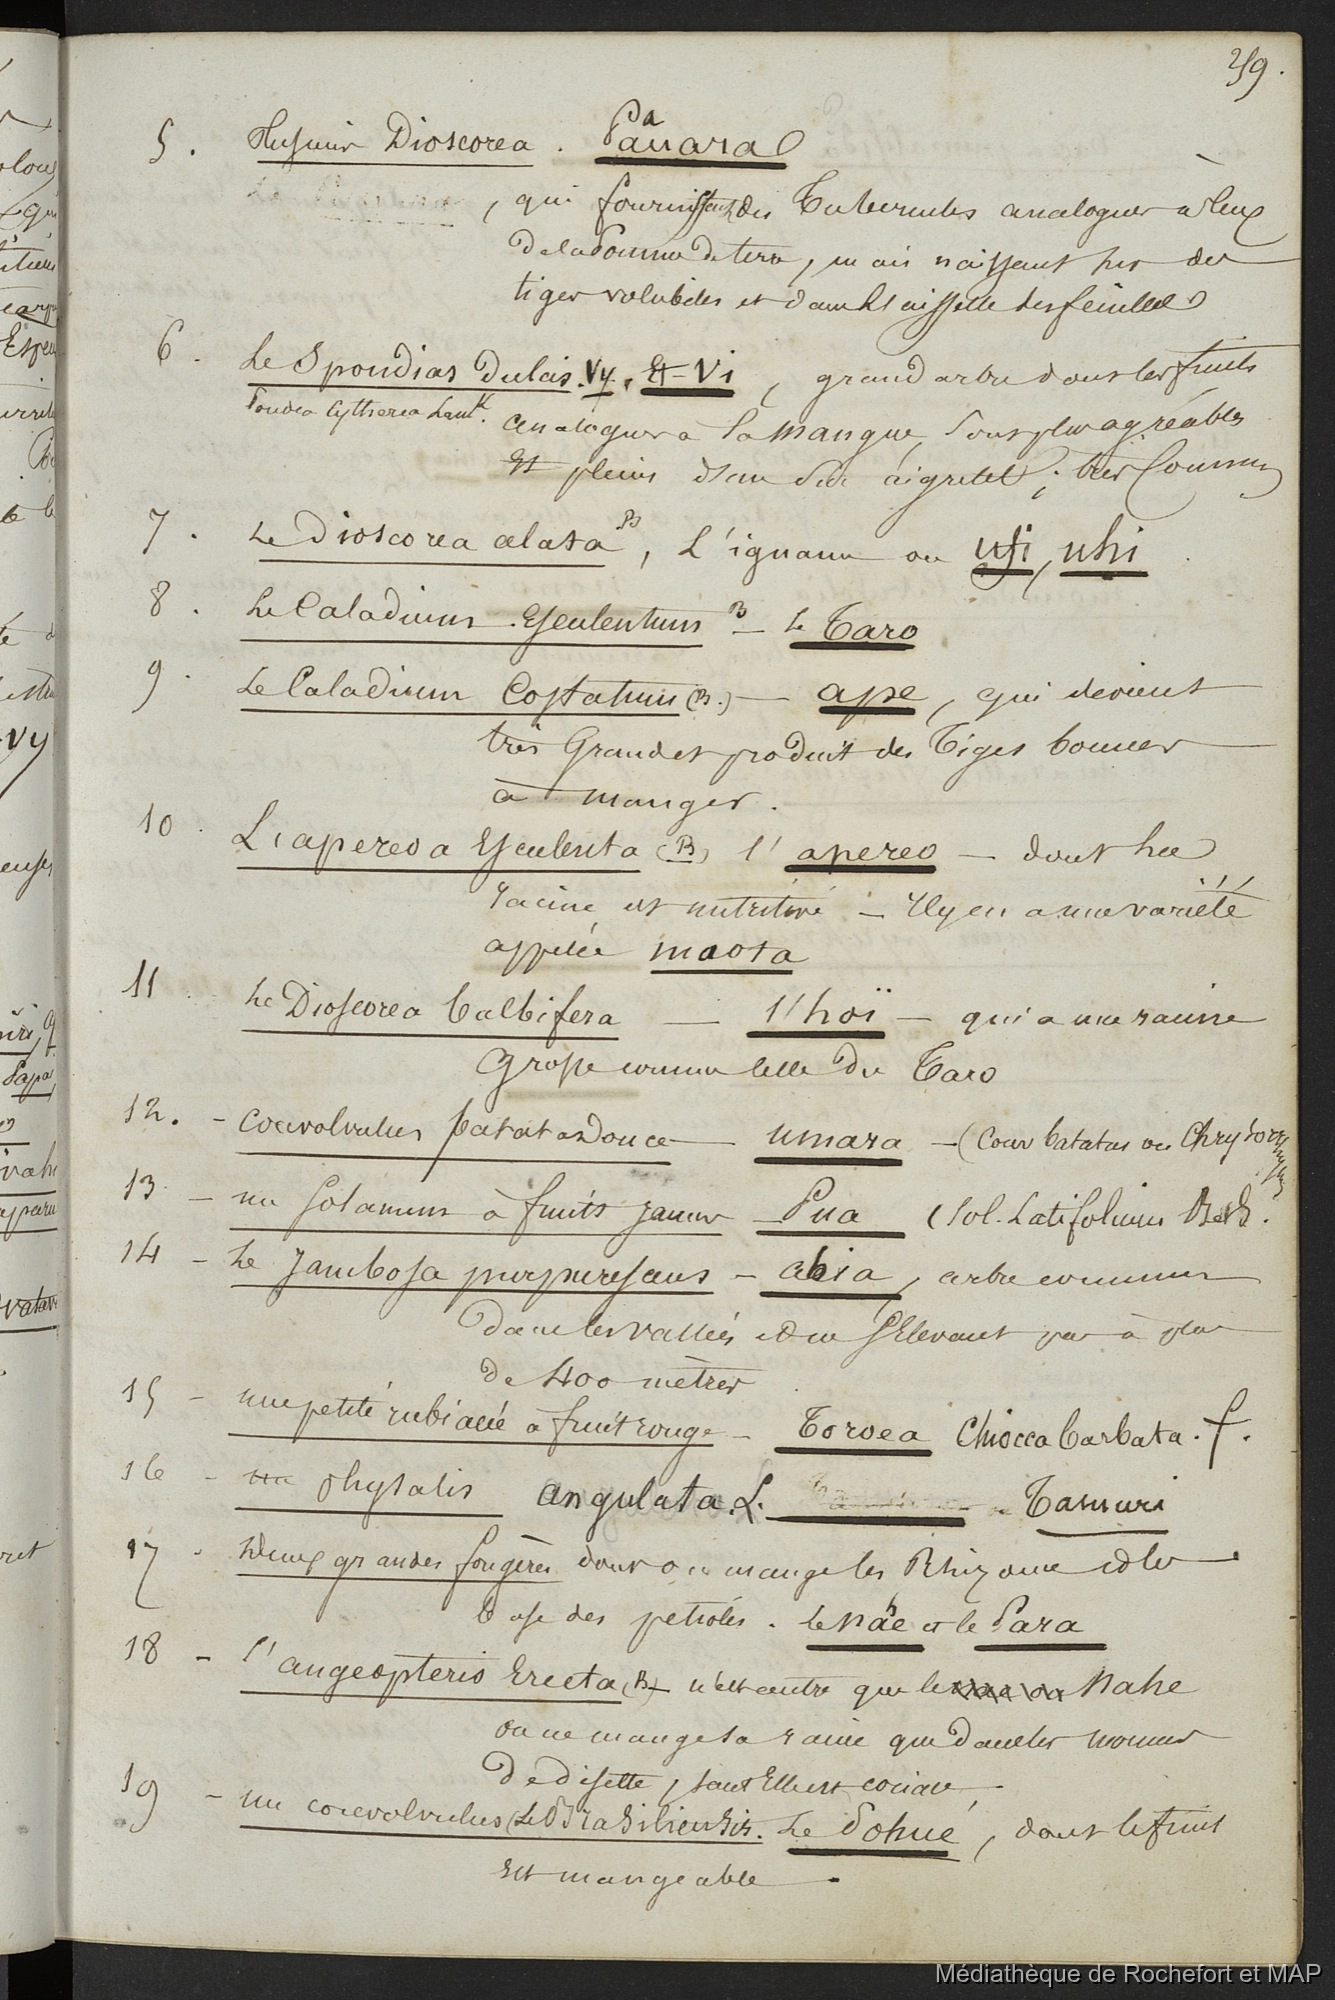 259.
5. Plusieurs Dioscorea. Pauara
a
, qui fournissent des Tubercules analogues à ceux
De la Pomme De terre, mais naissant sur des
tiges volubiles et dans l'aisselle des feuilles
6. Le Spondias Dulcis. Vy. Et Vi, grand arbre dont les fruits
Cytherea Lamk.
analogues à la Mangue, sont plus agréables
Et pleins d'un suc aigrelet; très commun
7. Le Dioscorea alata B, L'igname ou ufi, uhi
8. Le Caladium Esculentum B - le Taro
9. Le Caladium Costatum (B.) - ape, qui devient
très Grand et produit des Tiges bonnes
à manger.
10. L'apereoa Esculenta (B) l'apereo - dont la
racine est nutritive - Il y en a une variété
appelée maota
11 Le Dioscorea bulbifera - l'hoï - qui a une racine
Grosse comme celle Du Taro
12. - convolvulus patatas Douce - umara - (Conv batatas ou Chrysorrhizus
13 - un Solanum à fruits jaunes - Pua (Sol. Latifolium
14 - Le Jambosa purpurescens - ahia, arbre commun
dans les vallées et ne s'Elevant pas à plus
De 400 mètres
15 - une petite rubiacée à fruit rouge - Toroea Chiocca barbata. f.
16 - un physalis angulata. L. Tamuri
17 - Deux grandes fougères dont on mange les Rhizome et la
base des petioles. le nae et le Para
h
18 - l'angeopteris Erecta (B) - n'est autre que le nae ou Nahe
on ne mange sa racine que Dans les momens
De Disette, tant Elle est coriace,
19 - un convolvulus (Le Brasiliensis. Le Pohue, dont le fruit
Est mangeable.
Médiathèque de Rochefort et MAP